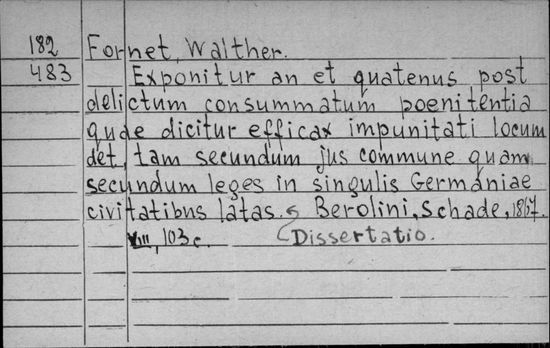 182 Fornet, Walther.
483 Exponitur an et quatenus post
delictum consummatum poenitentia
quae dicitur efficax impunitati locum
det, tam secundum jus commune quam
secundum leges in singulis Germaniae
civitatibus latas. Berolini, Schade, 1867.
VIII, 103 c. Dissertatio.